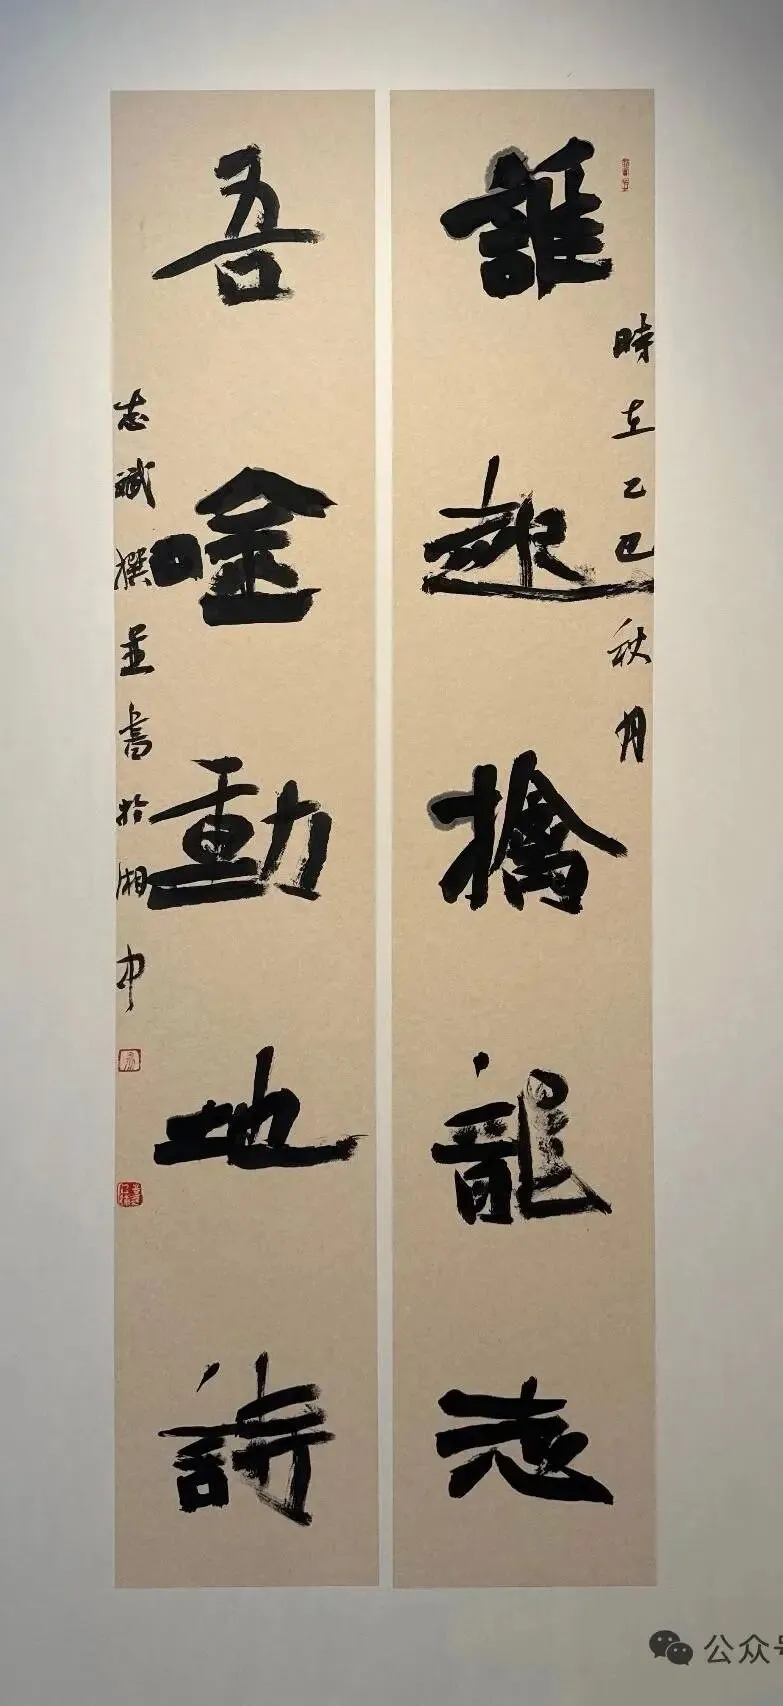 誰擒龍志
時在乙巳秋月
吾唫動地詩
志斌撰並書於湘中
公众号